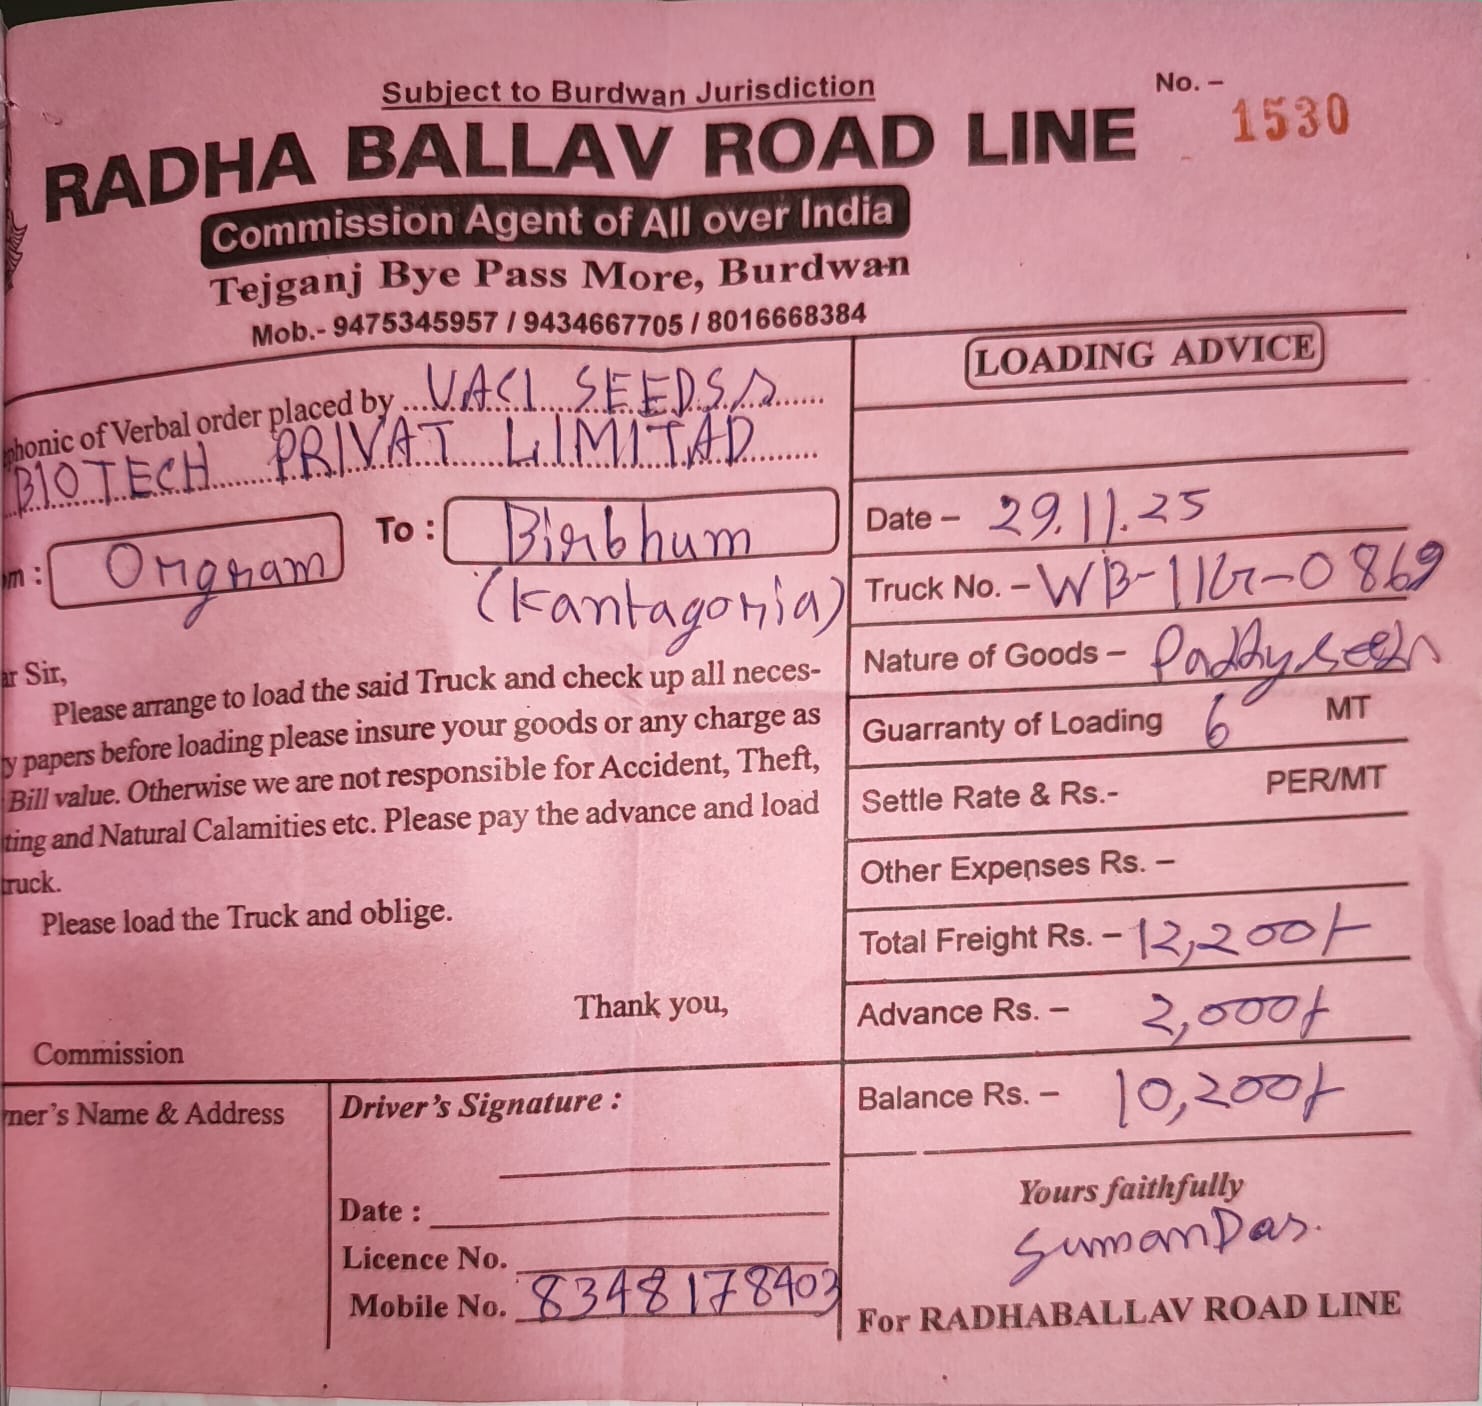 Subject to Burdwan Jurisdiction
No. –
1530
RADHA BALLAV ROAD LINE
Commission Agent of All over India
Tejganj Bye Pass More, Burdwan
Mob.- 9475345957 / 9434667705 / 8016668384
phonic of Verbal order placed by UACI SEEDS
BIOTECH PRIVAT LIMITAD
m : Orgram To : Birbhum
(Kantagoria)
ar Sir,
Please arrange to load the said Truck and check up all neces-
y papers before loading please insure your goods or any charge as
Bill value. Otherwise we are not responsible for Accident, Theft,
ting and Natural Calamities etc. Please pay the advance and load
truck.
Please load the Truck and oblige.
Thank you,
Commission
ner's Name & Address
Driver's Signature :
Date :
Licence No.
Mobile No. 8348178403
LOADING ADVICE
Date – 29.11.25
Truck No. – WB-11G-0869
Nature of Goods – Paddy seeds
Guarranty of Loading 6 MT
Settle Rate & Rs.- PER/MT
Other Expenses Rs. –
Total Freight Rs. – 12,200/-
Advance Rs. – 2,000/-
Balance Rs. – 10,200/-
Yours faithfully
Suman Das.
For RADHABALLAV ROAD LINE